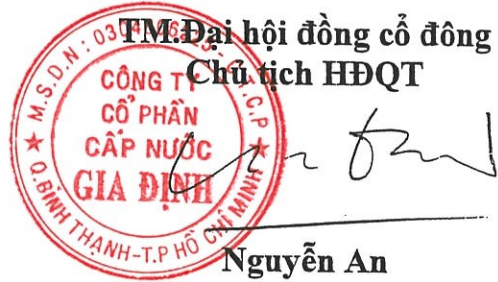 TM.Đại hội đồng cổ đông
Chủ tịch HĐQT
CÔNG TY
CỔ PHẦN
CẤP NƯỚC
GIA ĐỊNH
Q.BÌNH THẠNH-T.P HỒ CHÍ MINH
Nguyễn An